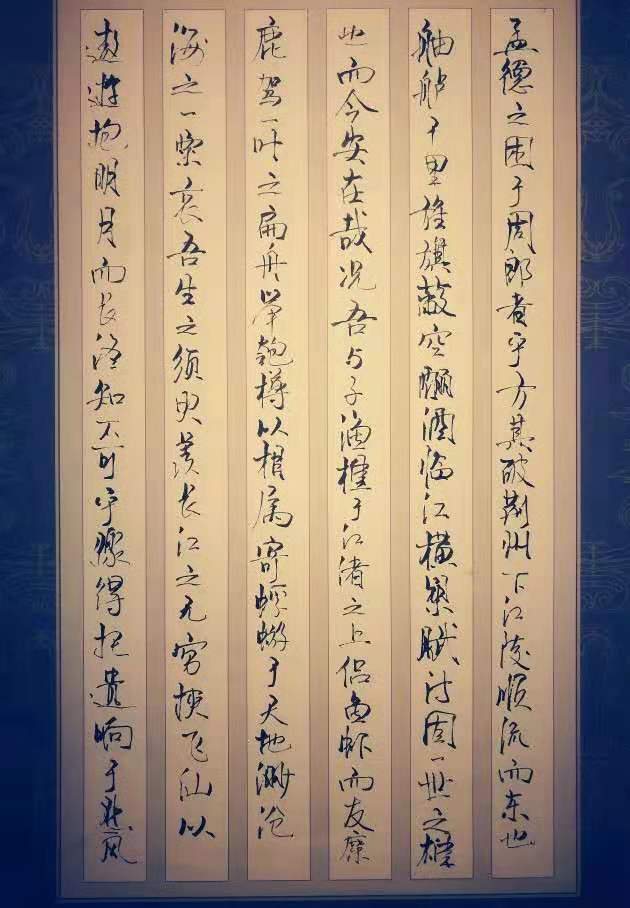 孟德之困于周郎者乎方其破荆州下江陵顺流而东也
舳舻千里旌旗蔽空酾酒临江横槊赋诗固一世之雄
也而今安在哉况吾与子渔樵于江渚之上侣鱼虾而友麋
鹿驾一叶之扁舟以举匏樽以相属寄蜉蝣于天地渺沧
海之一粟哀吾生之须臾羡长江之无穷挟飞仙以
遨游抱明月而长终知不可乎骤得托遗响于悲风